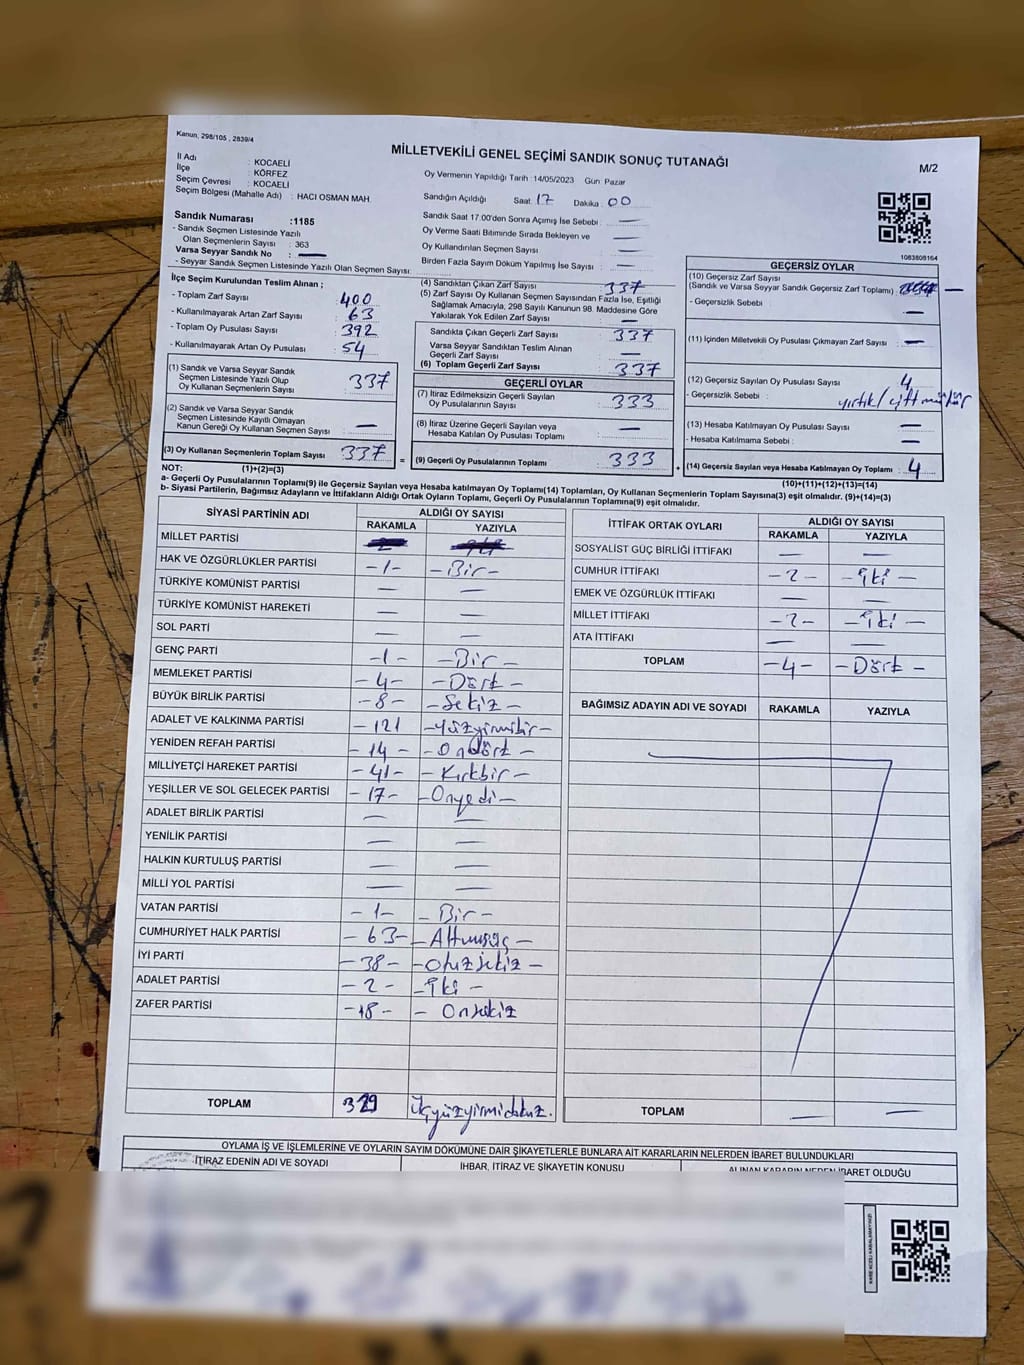 Kanun, 298/105 , 2839/4
MİLLETVEKİLİ GENEL SEÇİMİ SANDIK SONUÇ TUTANAĞI
M/2
İl Adı : KOCAELİ
İlçe : KÖRFEZ
Seçim Çevresi : KOCAELİ
Seçim Bölgesi (Mahalle Adı) : HACI OSMAN MAH.
Oy Vermenin Yapıldığı Tarih : 14/05/2023 Gün: Pazar
Sandığın Açıldığı Saat: 17 Dakika: 00
Sandık Saat 17.00'den Sonra Açımış İse Sebebi : —
Oy Verme Saati Bitiminde Sırada Bekleyen ve
Oy Kullandırılan Seçmen Sayısı : —
Birden Fazla Sayım Döküm Yapılmış İse Sayısı : —
Sandık Numarası :1185
- Sandık Seçmen Listesinde Yazılı
Olan Seçmenlerin Sayısı : 363
Varsa Seyyar Sandık No : —
- Seyyar Sandık Seçmen Listesinde Yazılı Olan Seçmen Sayısı:
1083808164
İlçe Seçim Kurulundan Teslim Alınan ;
- Toplam Zarf Sayısı : 400
- Kullanılmayarak Artan Zarf Sayısı : 63
- Toplam Oy Pusulası Sayısı : 392
- Kullanılmayarak Artan Oy Pusulası : 54
(1) Sandık ve Varsa Seyyar Sandık
Seçmen Listesinde Yazılı Olup
Oy Kullanan Seçmenlerin Sayısı : 337
(2) Sandık ve Varsa Seyyar Sandık
Seçmen Listesinde Kayıtlı Olmayan
Kanun Gereği Oy Kullanan Seçmen Sayısı : —
(3) Oy Kullanan Seçmenlerin Toplam Sayısı : 337
(4) Sandıktan Çıkan Zarf Sayısı : 337
(5) Zarf Sayısı Oy Kullanan Seçmen Sayısından Fazla İse, Eşitliği
Sağlamak Amacıyla, 298 Sayılı Kanunun 98. Maddesine Göre
Yakılarak Yok Edilen Zarf Sayısı : —
Sandıkta Çıkan Geçerli Zarf Sayısı : 337
Varsa Seyyar Sandıktan Teslim Alınan
Geçerli Zarf Sayısı : —
(6) Toplam Geçerli Zarf Sayısı : 337
GEÇERLİ OYLAR
(7) İtiraz Edilmeksizin Geçerli Sayılan
Oy Pusulalarının Sayısı : 333
(8) İtiraz Üzerine Geçerli Sayılan veya
Hesaba Katılan Oy Pusulası Toplamı : —
= (9) Geçerli Oy Pusulalarının Toplamı : 333 +
GEÇERSİZ OYLAR
(10) Geçersiz Zarf Sayısı
(Sandık ve Varsa Seyyar Sandık Geçersiz Zarf Toplamı) : —
- Geçersizlik Sebebi : —
(11) İçinden Milletvekili Oy Pusulası Çıkmayan Zarf Sayısı : —
(12) Geçersiz Sayılan Oy Pusulası Sayısı : 4
- Geçersizlik Sebebi : yırtık/çift mühür
(13) Hesaba Katılmayan Oy Pusulası Sayısı : —
- Hesaba Katılmama Sebebi : —
(14) Geçersiz Sayılan veya Hesaba Katılmayan Oy Toplamı : 4
NOT: (1)+(2)=(3)
(10)+(11)+(12)+(13)=(14)
a- Geçerli Oy Pusulalarının Toplamı(9) ile Geçersiz Sayılan veya Hesaba katılmayan Oy Toplamı(14) Toplamları, Oy Kullanan Seçmenlerin Toplam Sayısına(3) eşit olmalıdır. (9)+(14)=(3)
b- Siyasi Partilerin, Bağımsız Adayların ve İttifakların Aldığı Ortak Oyların Toplamı, Geçerli Oy Pusulalarının Toplamına(9) eşit olmalıdır.
SİYASİ PARTİNİN ADI ALDIĞI OY SAYISI
RAKAMLA YAZIYLA
MİLLET PARTİSİ
HAK VE ÖZGÜRLÜKLER PARTİSİ -1- -Bir-
TÜRKİYE KOMÜNİST PARTİSİ — —
TÜRKİYE KOMÜNİST HAREKETİ — —
SOL PARTİ — —
GENÇ PARTİ -1- -Bir-
MEMLEKET PARTİSİ -4- -Dört-
BÜYÜK BİRLİK PARTİSİ -8- -Sekiz-
ADALET VE KALKINMA PARTİSİ -121 -Yüzyirmibir-
YENİDEN REFAH PARTİSİ -14- -Ondört-
MİLLİYETÇİ HAREKET PARTİSİ -41- -Kırkbir-
YEŞİLLER VE SOL GELECEK PARTİSİ -17- -Onyedi-
ADALET BİRLİK PARTİSİ — —
YENİLİK PARTİSİ — —
HALKIN KURTULUŞ PARTİSİ — —
MİLLİ YOL PARTİSİ — —
VATAN PARTİSİ -1- -Bir-
CUMHURİYET HALK PARTİSİ -63- -Altmışüç-
İYİ PARTİ -38- -Otuzsekiz-
ADALET PARTİSİ -2- -İki-
ZAFER PARTİSİ -18- -Onsekiz
TOPLAM 329 Üçyüzyirmidokuz.
İTTİFAK ORTAK OYLARI ALDIĞI OY SAYISI
RAKAMLA YAZIYLA
SOSYALİST GÜÇ BİRLİĞİ İTTİFAKI — —
CUMHUR İTTİFAKI -2- -İki-
EMEK VE ÖZGÜRLÜK İTTİFAKI — —
MİLLET İTTİFAKI -2- -İki-
ATA İTTİFAKI — —
TOPLAM -4- -Dört-
BAĞIMSIZ ADAYIN ADI VE SOYADI RAKAMLA YAZIYLA
TOPLAM — —
OYLAMA İŞ VE İŞLEMLERİNE VE OYLARIN SAYIM DÖKÜMÜNE DAİR ŞİKAYETLERLE BUNLARA AİT KARARLARIN NELERDEN İBARET BULUNDUKLARI
İTİRAZ EDENİN ADI VE SOYADI İHBAR, İTİRAZ VE ŞİKAYETİN KONUSU ALINAN KARARIN NEDEN İBARET OLDUĞU